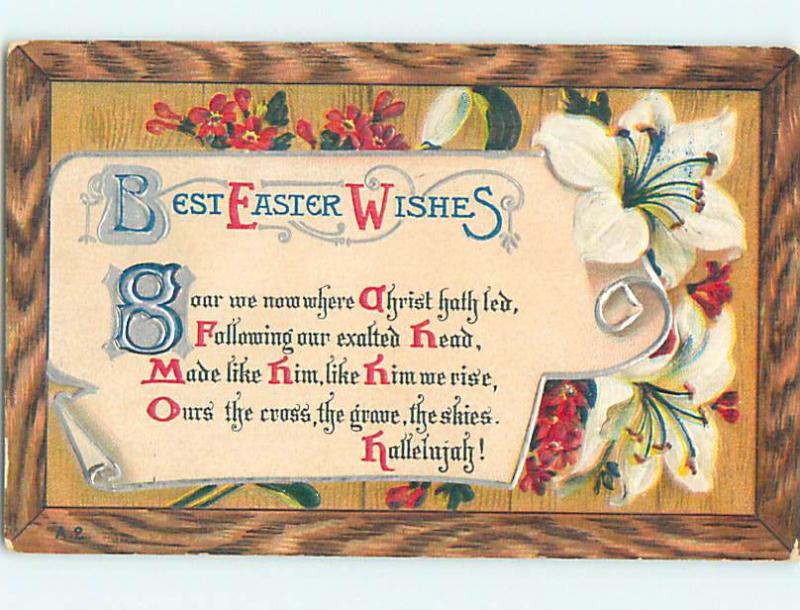 Best Easter Wishes
Soar we now where Christ hath led,
Following our exalted Head,
Made like Him, like Him we rise,
Ours the cross, the grave, the skies.
Hallelujah!
A 2